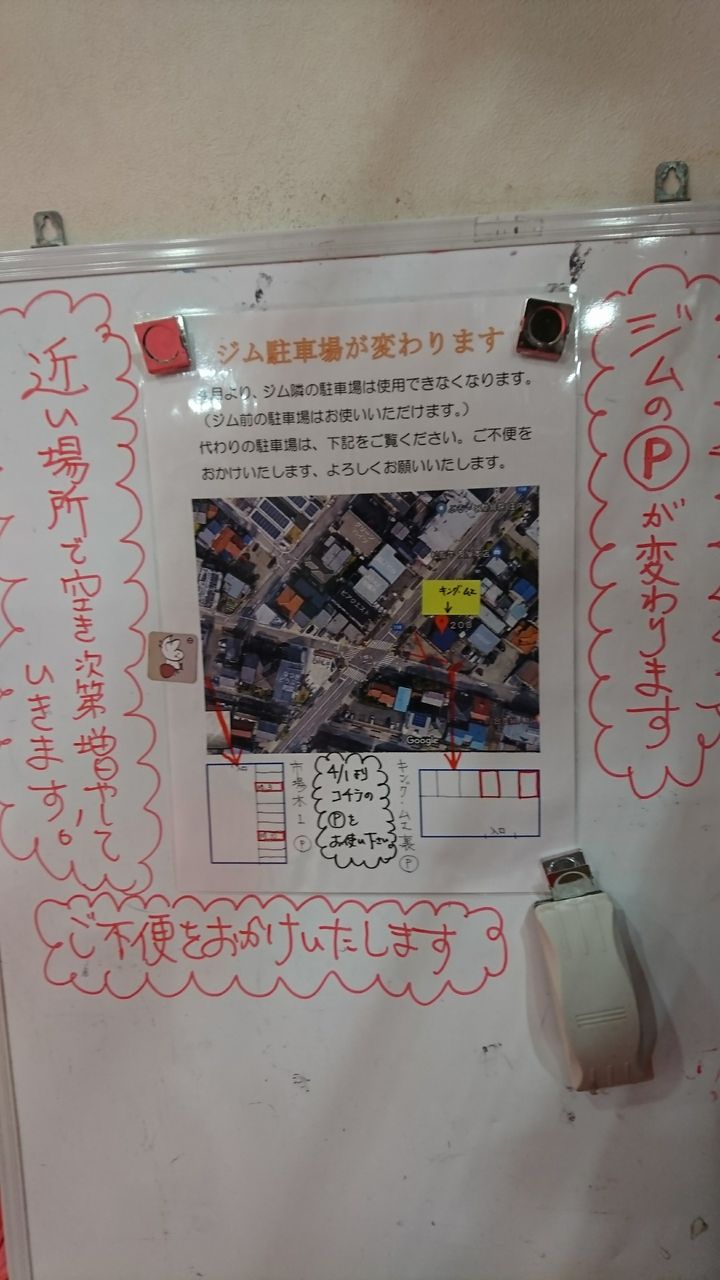 ジムのⓅが変わります
近い場所で空き次第増やして
いきます。
ジム駐車場が変わります
4月より、ジム隣の駐車場は使用できなくなります。
（ジム前の駐車場はお使いいただけます。）
代わりの駐車場は、下記をご覧ください。ご不便を
おかけいたします、よろしくお願いいたします。
キング・ムエ
209
ピアクエスト
Google
市場木1Ⓟ
4/1より
コチラの
Ⓟを
お使い下さい。
キング・ムエ裏Ⓟ
入口
ご不便をおかけいたします